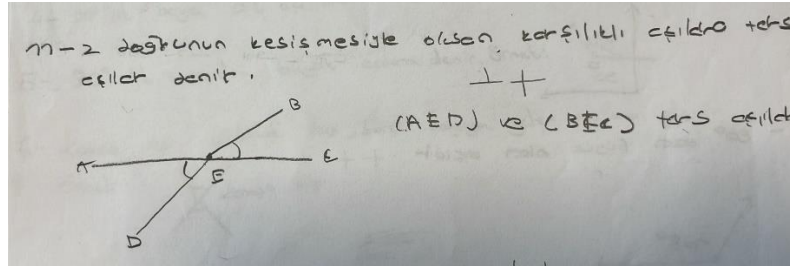 m-2 doğrunun kesişmesiyle oluşan karşılıklı açılara ters
açılar denir.
B
(AED) ve (BEC) ters açılar
A
E
E
D